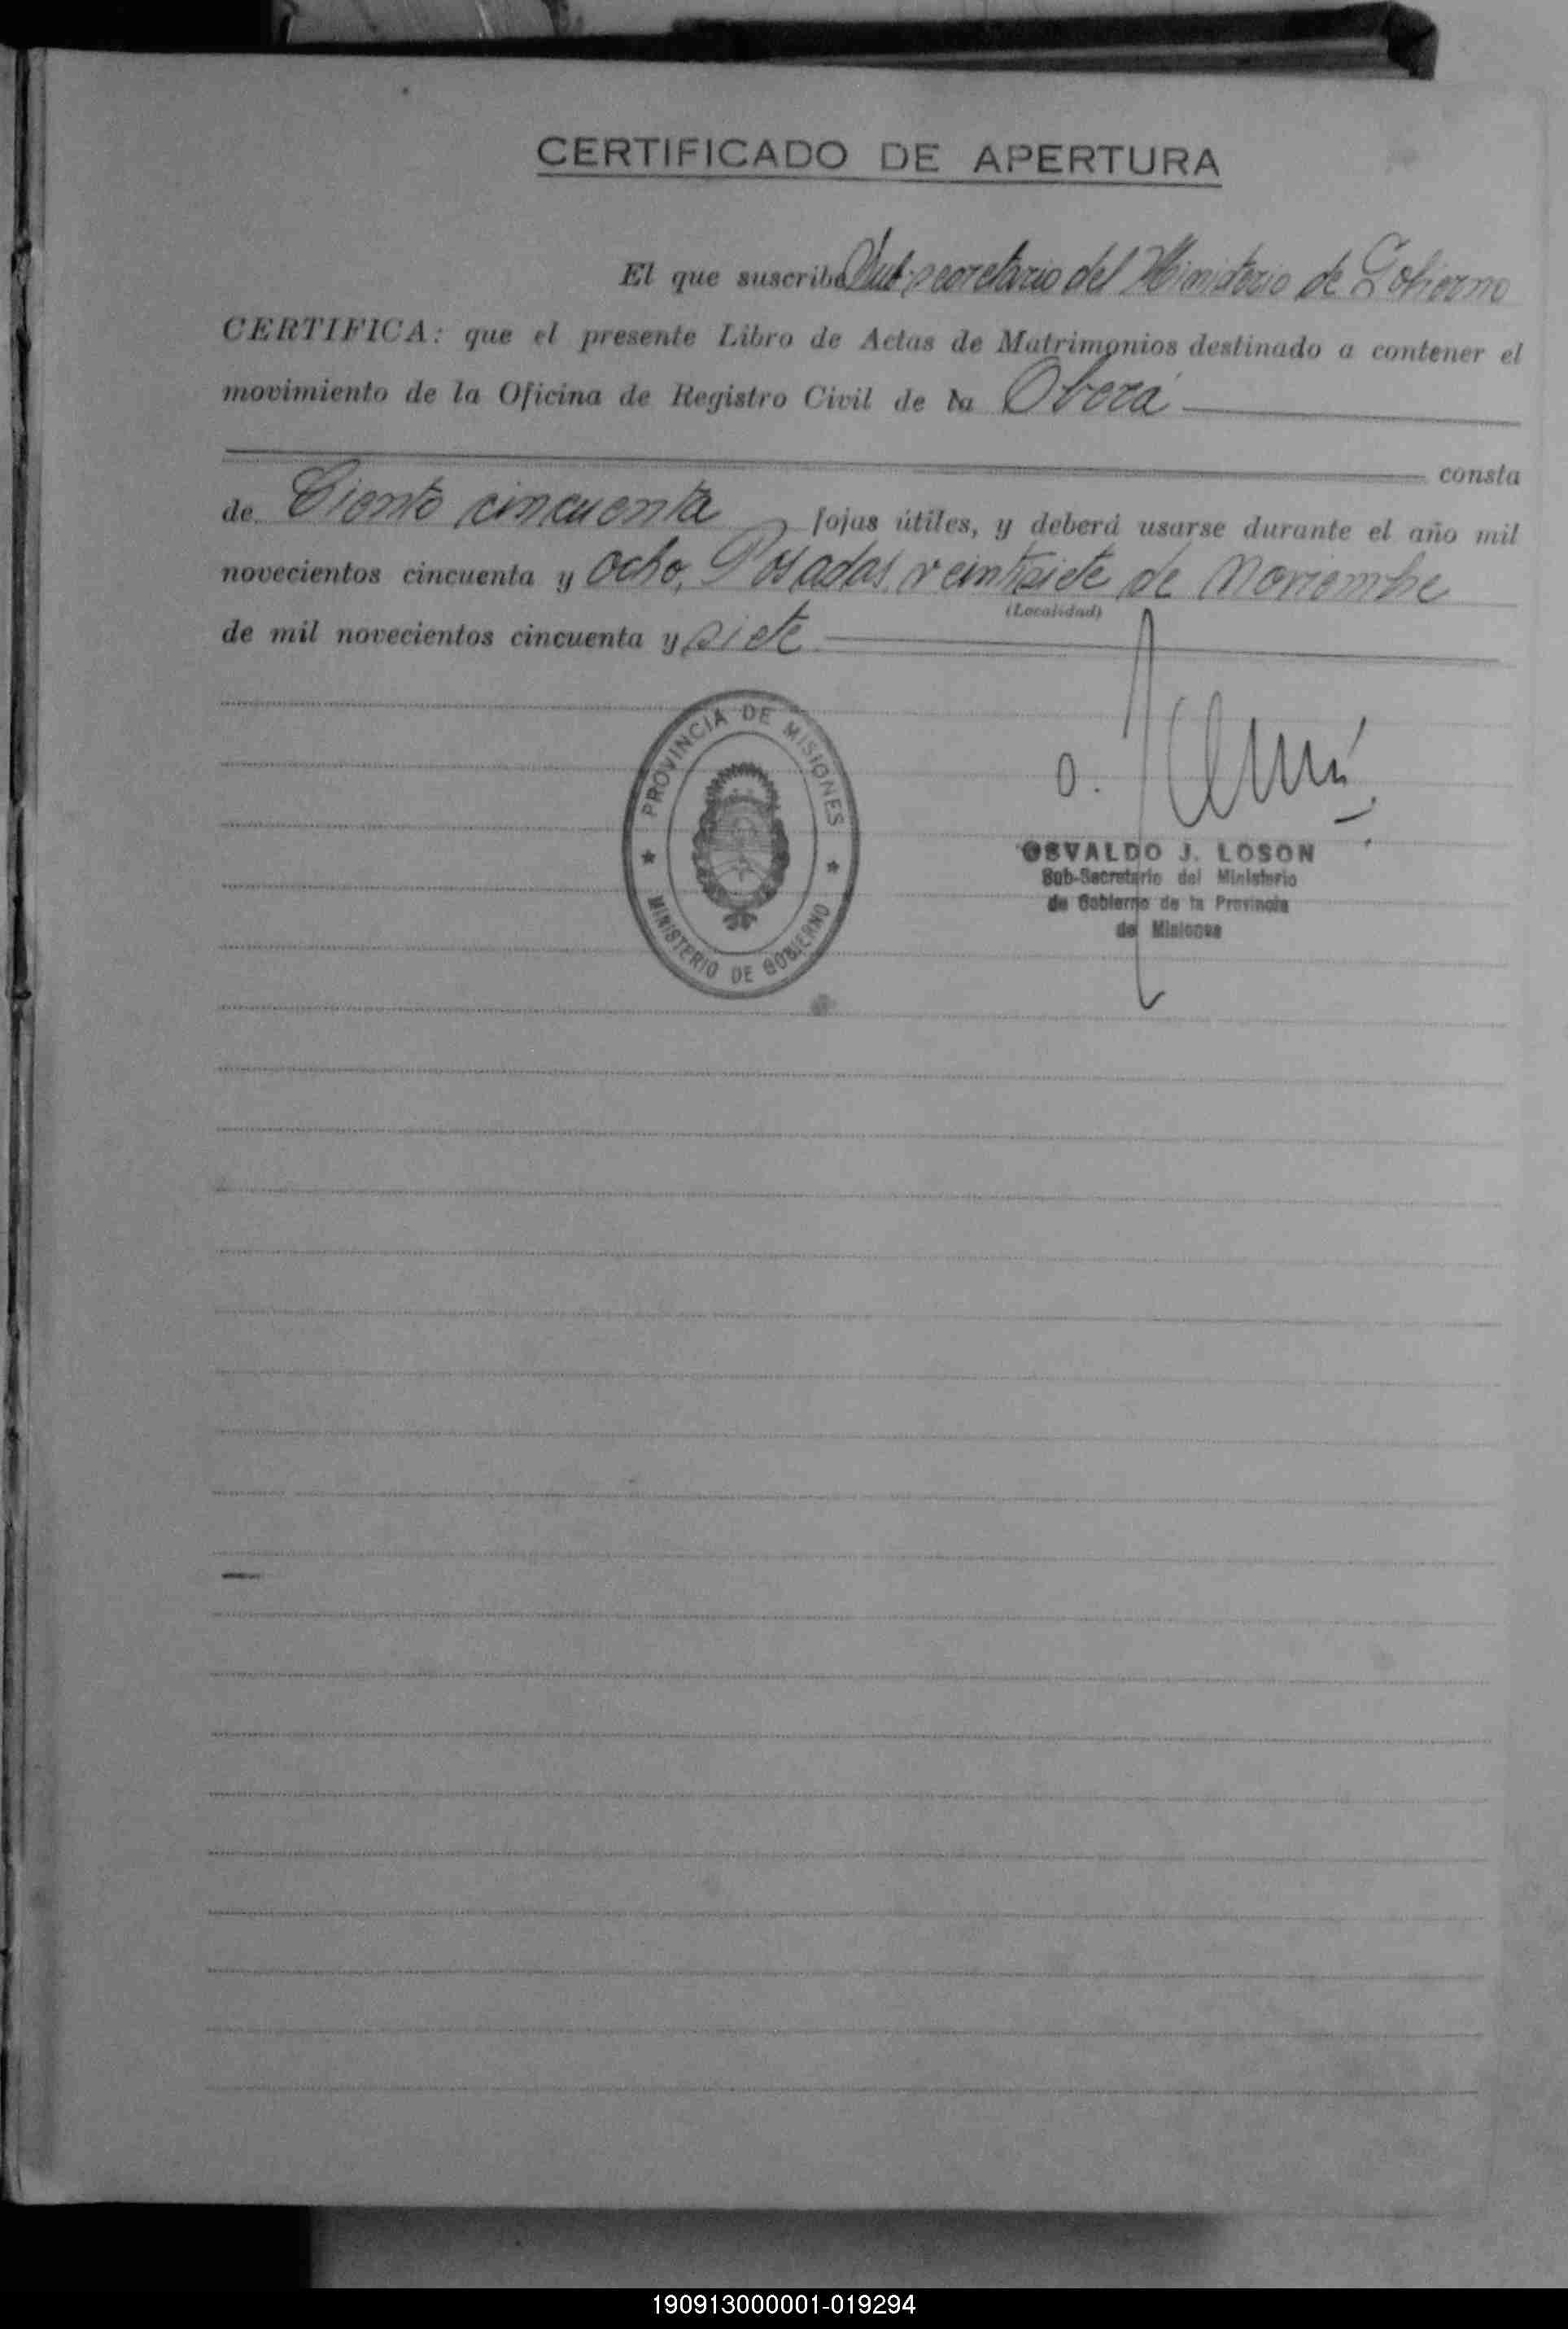 CERTIFICADO DE APERTURA
El que suscribe Sub-secretario del Ministerio de Gobierno
CERTIFICA: que el presente Libro de Actas de Matrimonios destinado a contener el
movimiento de la Oficina de Registro Civil de la Oberá
consta
de Ciento cincuenta fojas útiles, y deberá usarse durante el año mil
novecientos cincuenta y ocho, Posadas, veintisiete de Noviembre
(Localidad)
de mil novecientos cincuenta y siete
PROVINCIA DE MISIONES
MINISTERIO DE GOBIERNO
OSVALDO J. LOSON
Sub-Secretario del Ministerio
de Gobierno de la Provincia
de Misiones
190913000001-019294